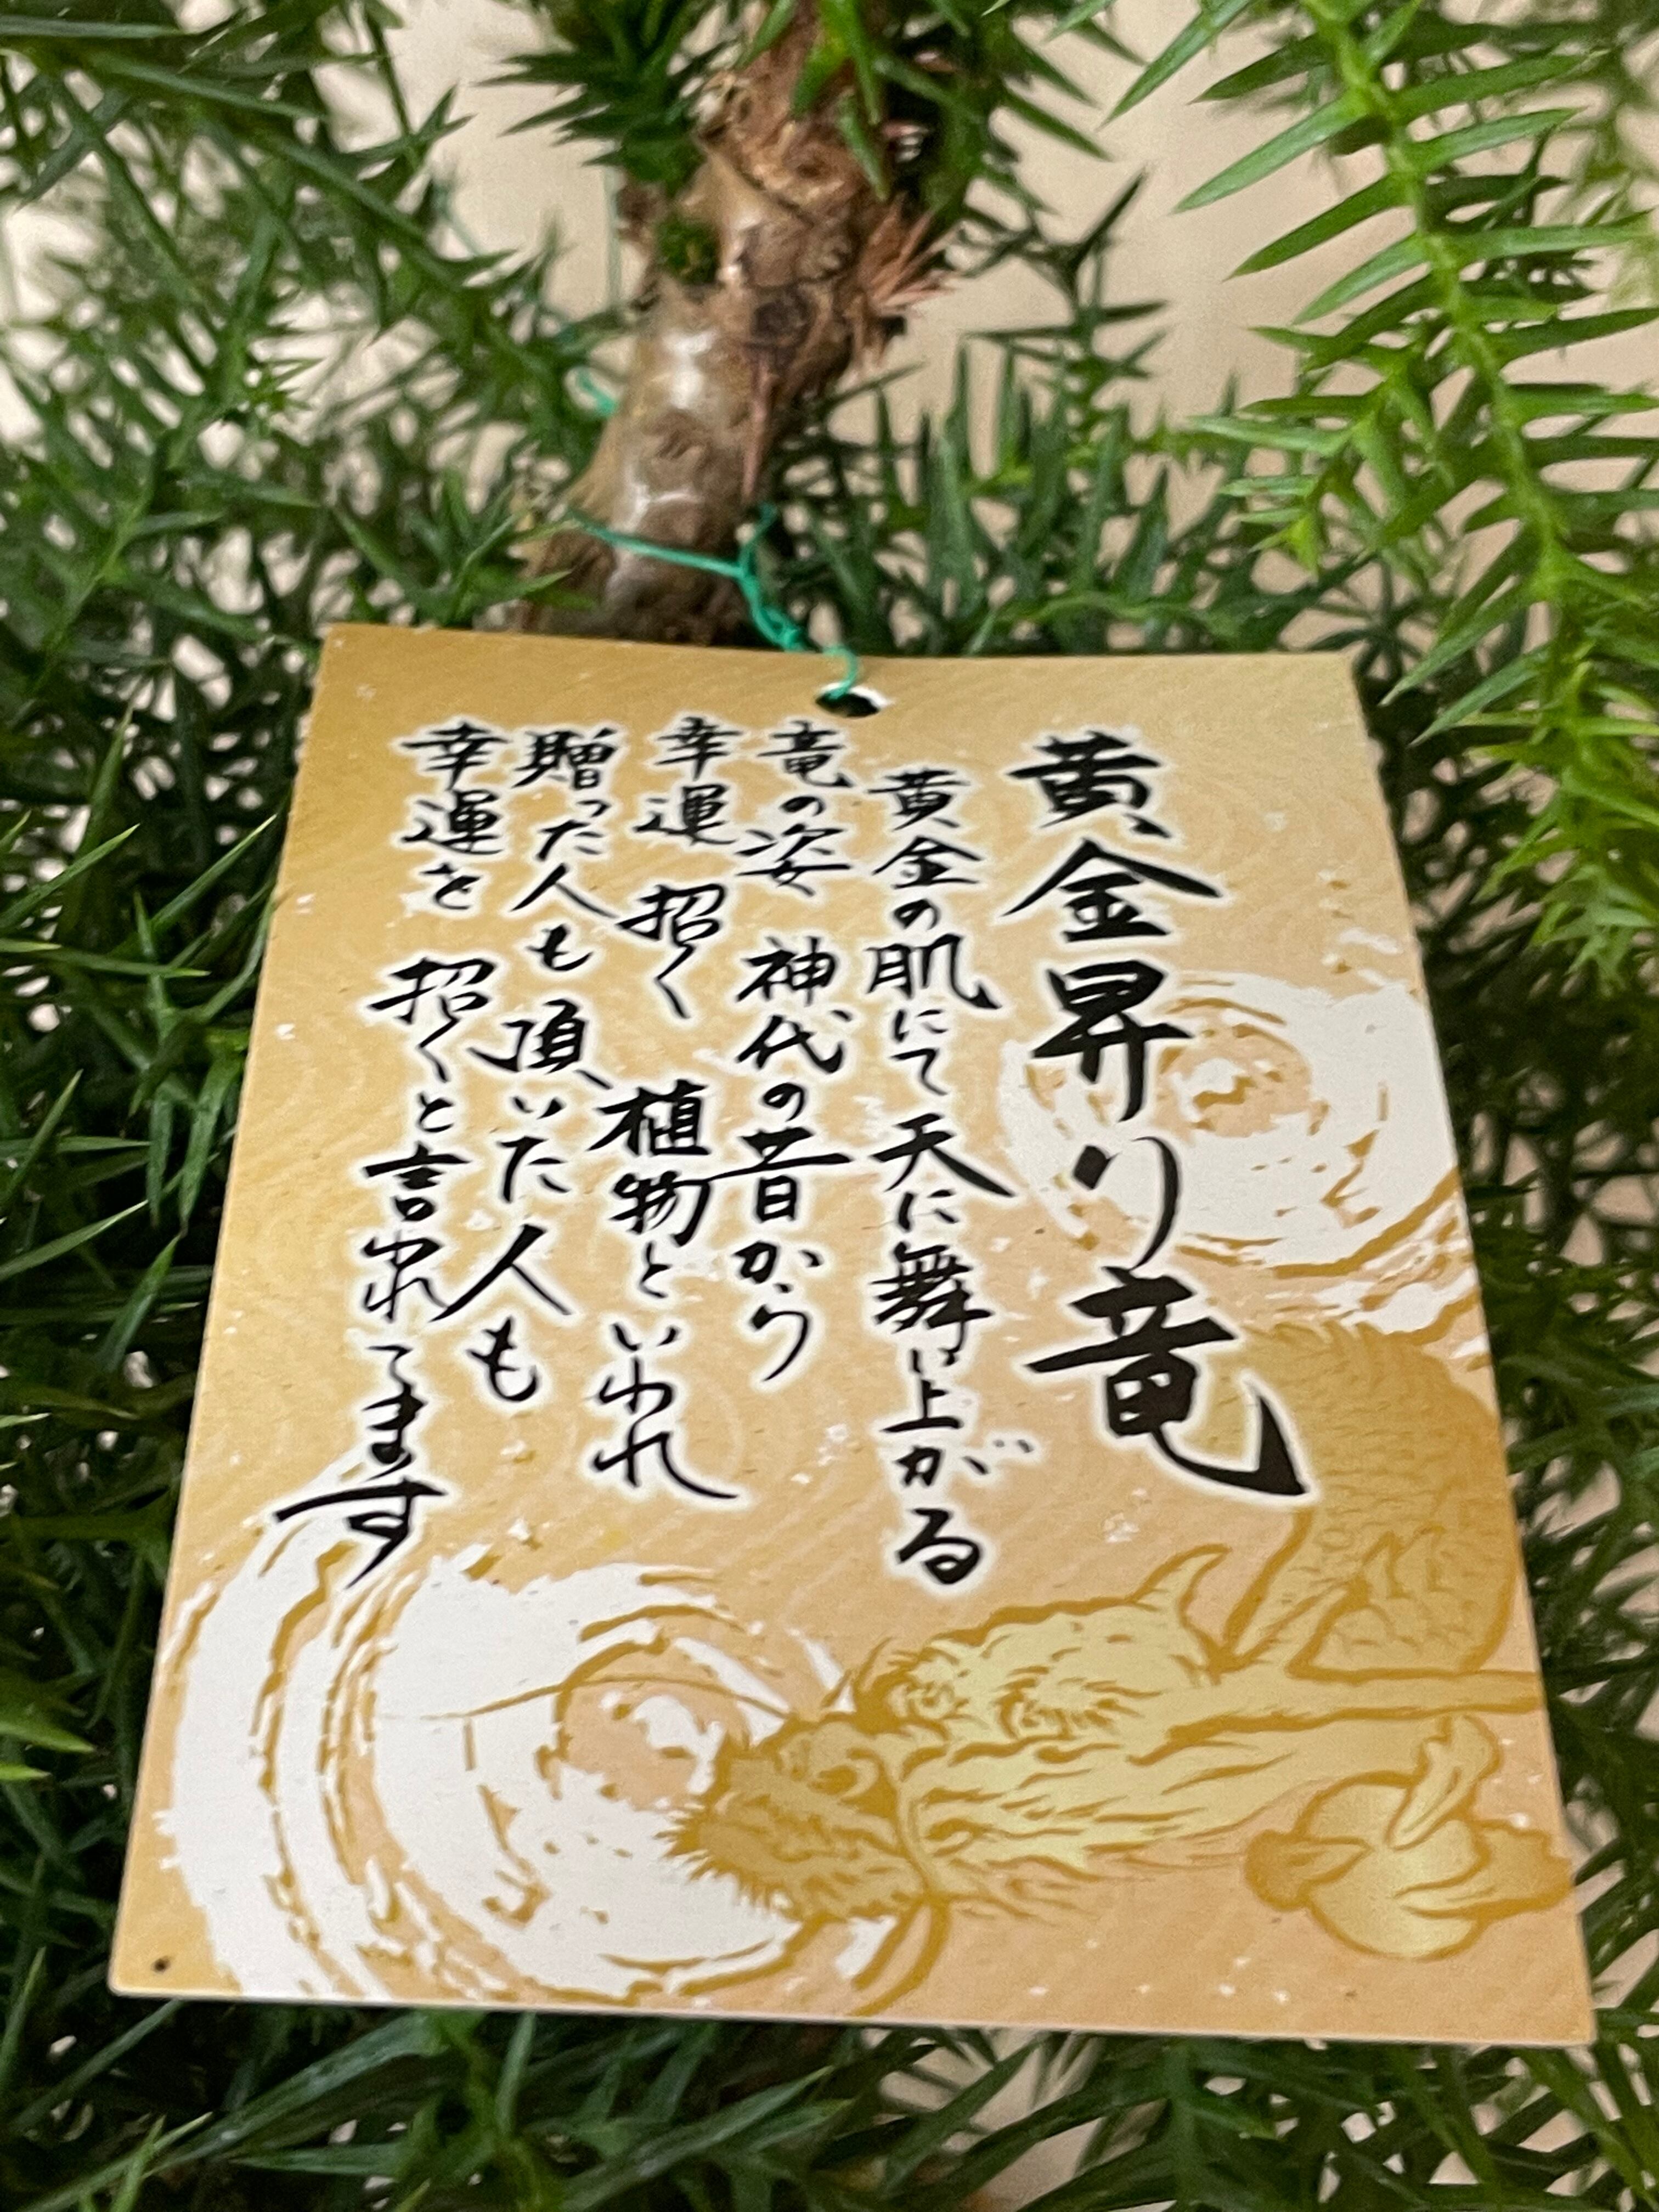 黄金昇り竜
黄金の肌にて天に舞い上がる
竜の姿 神代の昔から
幸運 招く 植物といわれ
贈った人も 頂いた人も
幸運を 招くと言われてます